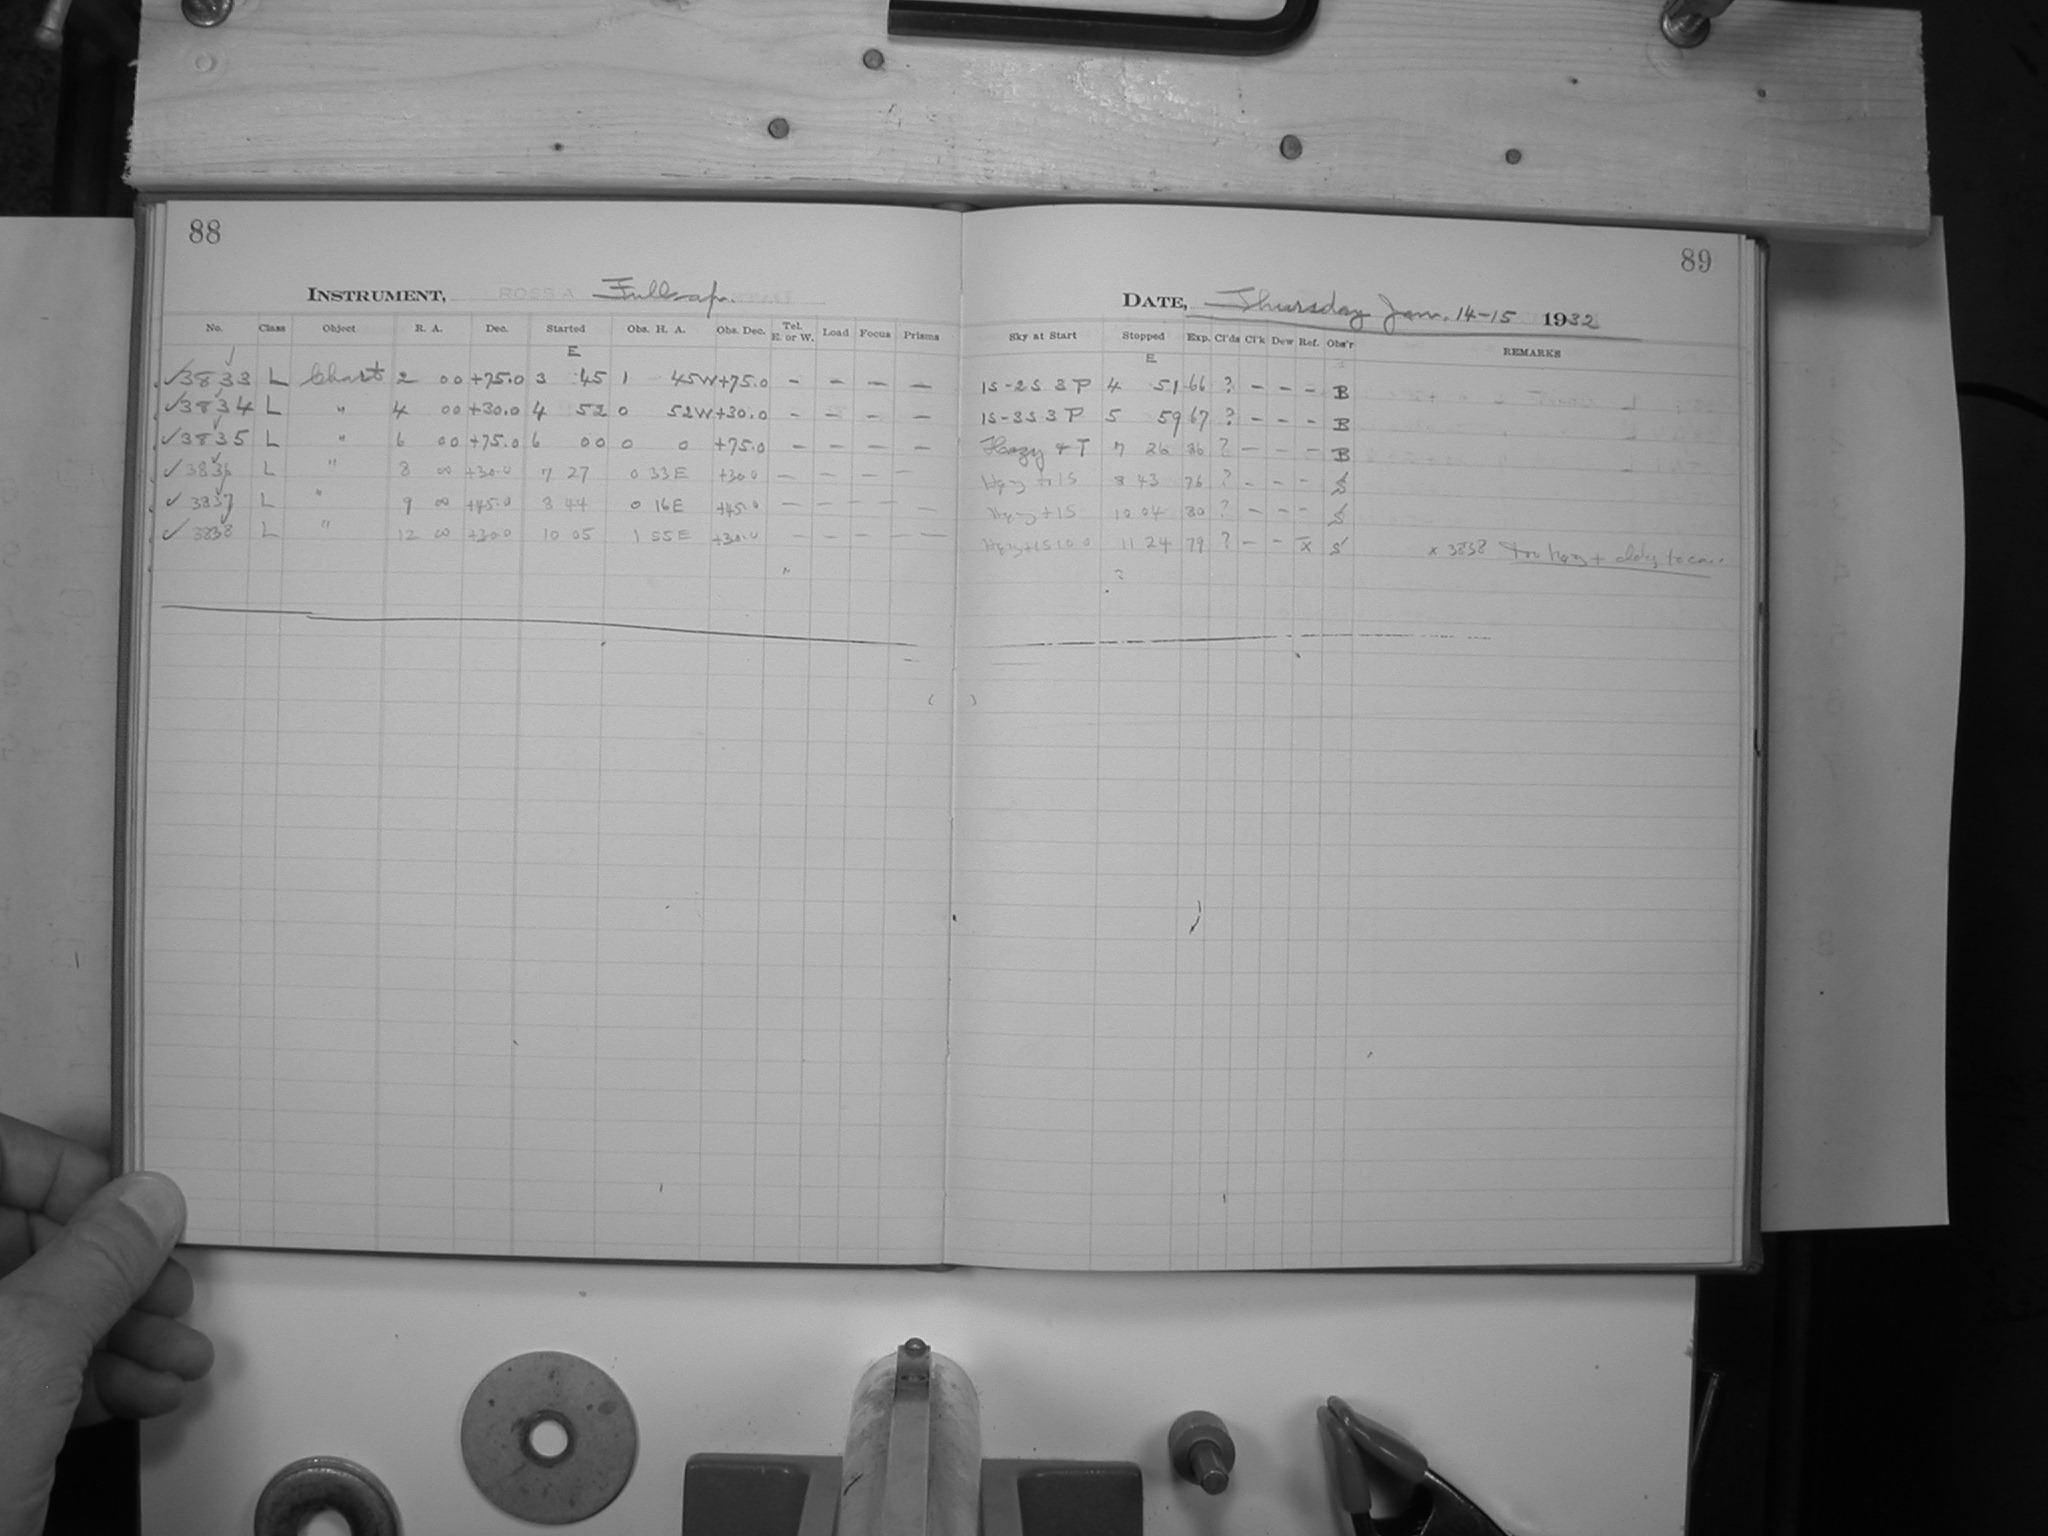 88
INSTRUMENT, ROSS A Full ap.
No. Class Object R. A. Dec. Started Obs. H. A. Obs. Dec. Tel. E. or W. Load Focus Prisms
E
✓3833 L Chart 2 00 +75.0 3 45 1 45W +75.0 - - - -
✓3834 L " 4 00 +30.0 4 52 0 52W +30.0 - - - -
✓3835 L " 6 00 +75.0 6 00 0 0 +75.0 - - - -
✓3836 L " 8 00 +30.0 7 27 0 33E +30.0 - - - -
✓3837 L " 9 00 +45.0 8 44 0 16E +45.0 - - - -
✓3838 L " 12 00 +30.0 10 05 1 55E +30.0 - - - -
"
89
DATE, Thursday Jan. 14-15 1932
Sky at Start Stopped Exp. Cl'ds Cl'k Dew Ref. Obs'r REMARKS
E
1S-2S 3P 4 51 66 ? - - - B
1S-3S 3P 5 59 67 ? - - - B
Hazy + T 7 26 86 ? - - - B
Hazy + 1S 8 43 76 ? - - - S
Hazy + 1S 10 04 80 ? - - - S
Hazy + 1S 11 24 79 ? - - x S x 3838 Too hazy + cldy to
?